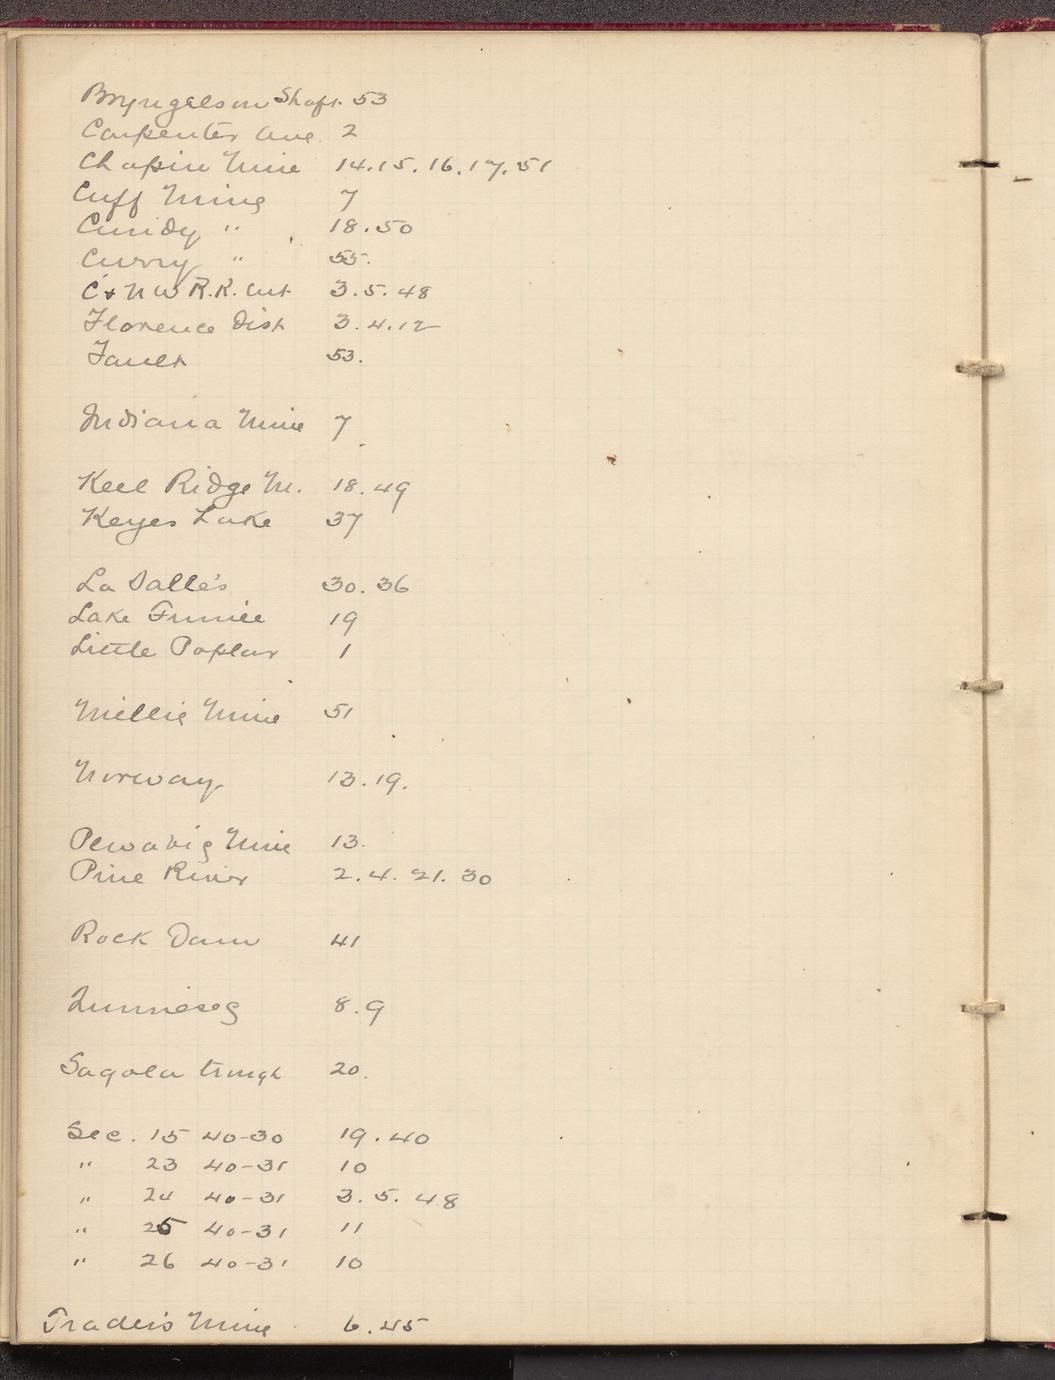 Bryngelson Shaft 53
Carpenter Ave. 2
Chapin Mine 14.15.16.17.51
Cuff Mine 7
Cundy " 18.50
Curry " 55.
C + N W R.R. Cut 3.5.48
Florence Dist 3.4.12
Fault 53.
Indiana Mine 7
Keel Ridge M. 18.49
Keyes Lake 37
La Salle's 30.36
Lake Fumee 19
Little Poplar 1
Millie Mine 51
Norway 13.19.
Pewabic Mine 13.
Pine River 2.4.21.30
Rock Dam 41
Quinnesec 8.9
Sagola trough 20.
Sec. 15 40-30 19.40
" 23 40-31 10
" 24 40-31 3.5.48
" 25 40-31 11
" 26 40-31 10
Traders Mine 6.45